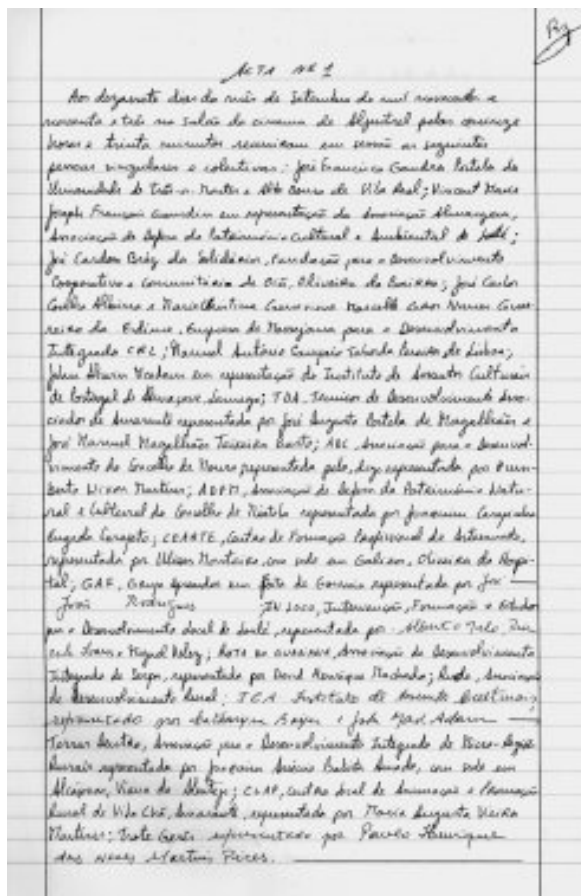 ACTA Nº 1
Aos dezassete dias do mês de Setembro de mil novecentos e
noventa e três no salão do cinema de Aljustrel pelas quinze
horas e trinta minutos reuniram em sessão as seguintes
pessoas singulares e colectivas: José Francisco Gandra Portela da
Universidade de Trás-os-Montes e Alto Douro de Vila Real; Vincent Marie
Joseph François em representação da Associação Almargem,
Associação de Defesa do Património Cultural e Ambiental de Loulé;
José Cardoso da Solidários, Fundação para o Desenvolvimento
Cooperativo e Comunitário de Oiã, Oliveira do Bairro; José Carlos
Coelho Albino e Maria Nunes Guer-
reiro da Esdime, de Messejana para o Desenvolvimento
Integrado CRL; Manuel António de Lisboa;
John em representação do Instituto de Assuntos Culturais
de Portugal de; TDA, Técnicos de Desenvolvimento Asso-
ciados de Amarante representada por José Augusto Portela de Magalhães e
José Manuel Magalhães Teixeira; ADC, Associação para o Desenvol-
vimento do Concelho de Moura representada pelo, digo representada por
Martins; ADPM, Associação de Defesa do Património Natu-
ral e Cultural do Concelho de Mértola representada por Joaquim
; CEARTE, Centro de Formação Profissional do Artesanato,
representada por Ulisses, com sede em Galizes, Oliveira do Hospi-
tal; GAF, Grupo Aprender em Festa de Gouveia representada por José
João Rodrigues IN LOCO, Intervenção, Formação e Estudos
para o Desenvolvimento Local de Loulé, representada por Alberto Melo,
e Miguel; ROTA DO GUADIANA, Associação de Desenvolvimento
Integrado de Serpa, representada por David Henrique Machado; Rude, Associação
de Desenvolvimento Rural; ICA Instituto de Assuntos Culturais,
representado por e John
Terras Dentro, Associação para o Desenvolvimento Integrado de Micro-Regiões
Rurais representada por Joaquim Batista, com sede em
Alcáçovas, Viana do Alentejo; CLAP, Centro Local de Animação e Promoção
Rural de Vila Chã, Amarante, representada por Maria Augusta Vieira
Martins; representado por Paulo Henrique
das Neves Martins Pires.